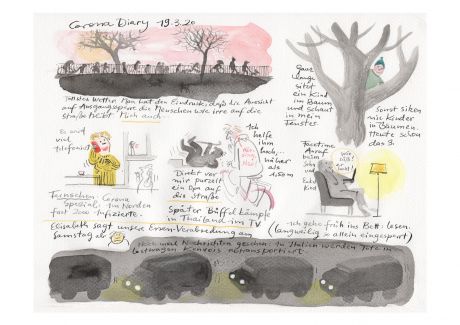 Corona Diary 19.3.20
Tollstes Wetter. Man hat den Eindruck, daß die Aussicht
auf Ausgangssperre die Menschen wie irre auf die
Straße treibt. Mich auch.
Ganz
lange
sitzt
ein Kind
im Baum
und schaut
in mein
Fenster.
Sonst sitzen
nie Kinder
in Bäumen.
Heute schon
das 3.
Es wird
viel
telefoniert
Direkt vor
mir purzelt
ein Opa auf
die Straße
Ich
helfe
ihm
hoch...
näher
als
1.50m
Facetime
Anruf
beim
und
Kind
Fernsehen: Corona
Spezial: Im Norden
fast 2000 Infizierte.
Später Büffelkämpfe
in Thailand im TV
Ich gehe früh ins Bett: lesen.
(langweilig so allein eingesperrt)
Elisabeth sagt unsere Essen-Verabredung am
Samstag ab
Noch mal Nachrichten gesehen: in Italien werden Tote in
Lastwagen Konvois abtransportiert